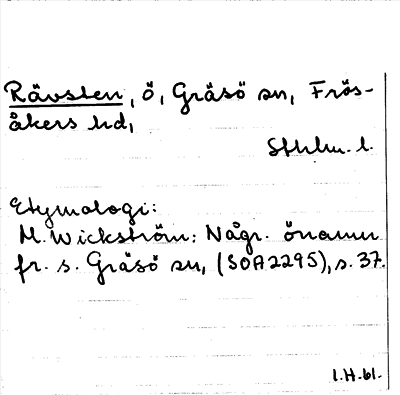 Rävsten, ö, Gräsö sn, Frös-
åkers hd,
Sthlm. l.
Etymologi:
M. Wickström: Någr. önamn
fr. s. Gräsö sn, (SOA2295), s. 37.
I.H.61.